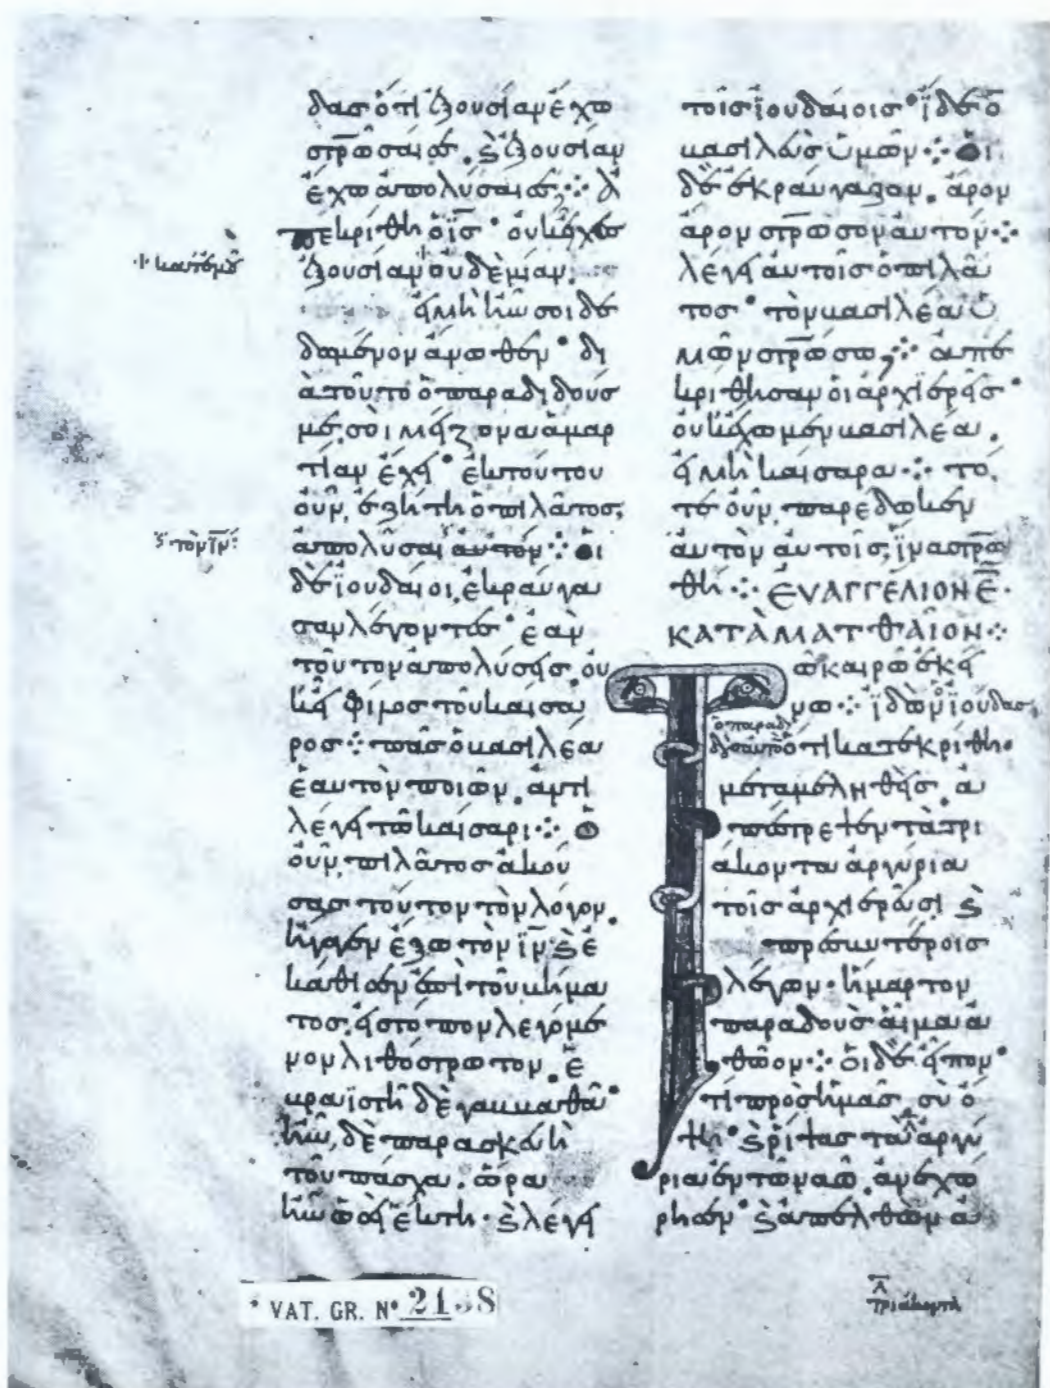 δας ὅτι ἐξουσίαν ἔχω
στρῶσαί σε. καὶ ἐξουσίαν
ἔχω ἀπολῦσαί σε: ἀ
πεκρίθη ὁ ἰς· οὐκ ἔχεις
ἐξουσίαν οὐδεμίαν
κατ' ἐμοῦ
εἰ μὴ ἦν σοι δε
δομένον ἄνωθεν· δι
ὰ τοῦτο ὁ παραδιδούς
μέ σοι μείζονα ἁμαρ
τίαν ἔχει· ἐκ τούτου
οὖν ἐζήτει ὁ πιλᾶτος
ἀπολῦσαι αὐτόν: οἱ
τὸν ἰν:
δὲ ἰουδαῖοι ἐκραύγα
σαν λέγοντες· ἐὰν
τοῦτον ἀπολύσεις οὐ
κ εἶ φίλος τοῦ καίσα
ρος: πᾶς ὁ βασιλέα
ἑαυτὸν ποιῶν. ἀντι
λέγει τῶ καίσαρι: ὁ
οὖν πιλᾶτος ἀκού
σας τοῦτον τὸν λόγον.
ἤγαγεν ἔξω τὸν ἰν καὶ ἐ
κάθισεν ἐπὶ τοῦ βήμα
τος, εἰς τόπον λεγόμε
νον λιθόστρωτον. ἑ
βραϊστὶ δὲ γαββαθᾶ·
ἦν δὲ παρασκευὴ
τοῦ πάσχα. ὥρα
ἦν ὡσεὶ ἕκτη· καὶ λέγει
τοῖς ἰουδαίοις· ἴδε ὁ
βασιλεὺς ὑμῶν: οἱ
δὲ ἐκραύγαζον. ἆρον
ἆρον στρωσον αὐτόν:
λέγει αὐτοῖς ὁ πιλᾶ
τος· τὸν βασιλέα ὑ
μῶν στρώσω; ἀπε
κρίθησαν οἱ ἀρχιερεῖς·
οὐκ ἔχωμεν βασιλέα.
εἰ μὴ καίσαρα: τό
τε οὖν παρέδωκεν
αὐτὸν αὐτοῖς, ἵνα στρω
θῆ: ΕΥΑΓΓΕΛΙΟΝ Ε·
ΚΑΤΑ ΜΑΤΘΑΙΟΝ:
Τῶ καιρῶ ἐκεί
νω: ἰδὼν ἰούδας
ὁ παραδι
δοὺς αὐτὸν ὅτι κατεκρίθη.
μεταμεληθεὶς. ἀ
πέστρεψεν τὰ τρι
άκοντα ἀργύρια
τοῖς ἀρχιερεῦσι καὶ
πρεσβυτέροις
λέγων· ἥμαρτον
παραδοὺς αἷμα ἀ
θῶον: οἱ δὲ εἶπον·
τί πρὸς ἡμᾶς σὺ ὄ
ψη· καὶ ρίψας τὰ ἀργύ
ρια ἐν τῶ ναῶ. ἀνεχώ
ρησεν· καὶ ἀπελθὼν ἀ
τριάκοντα
VAT. GR. Nº 2138